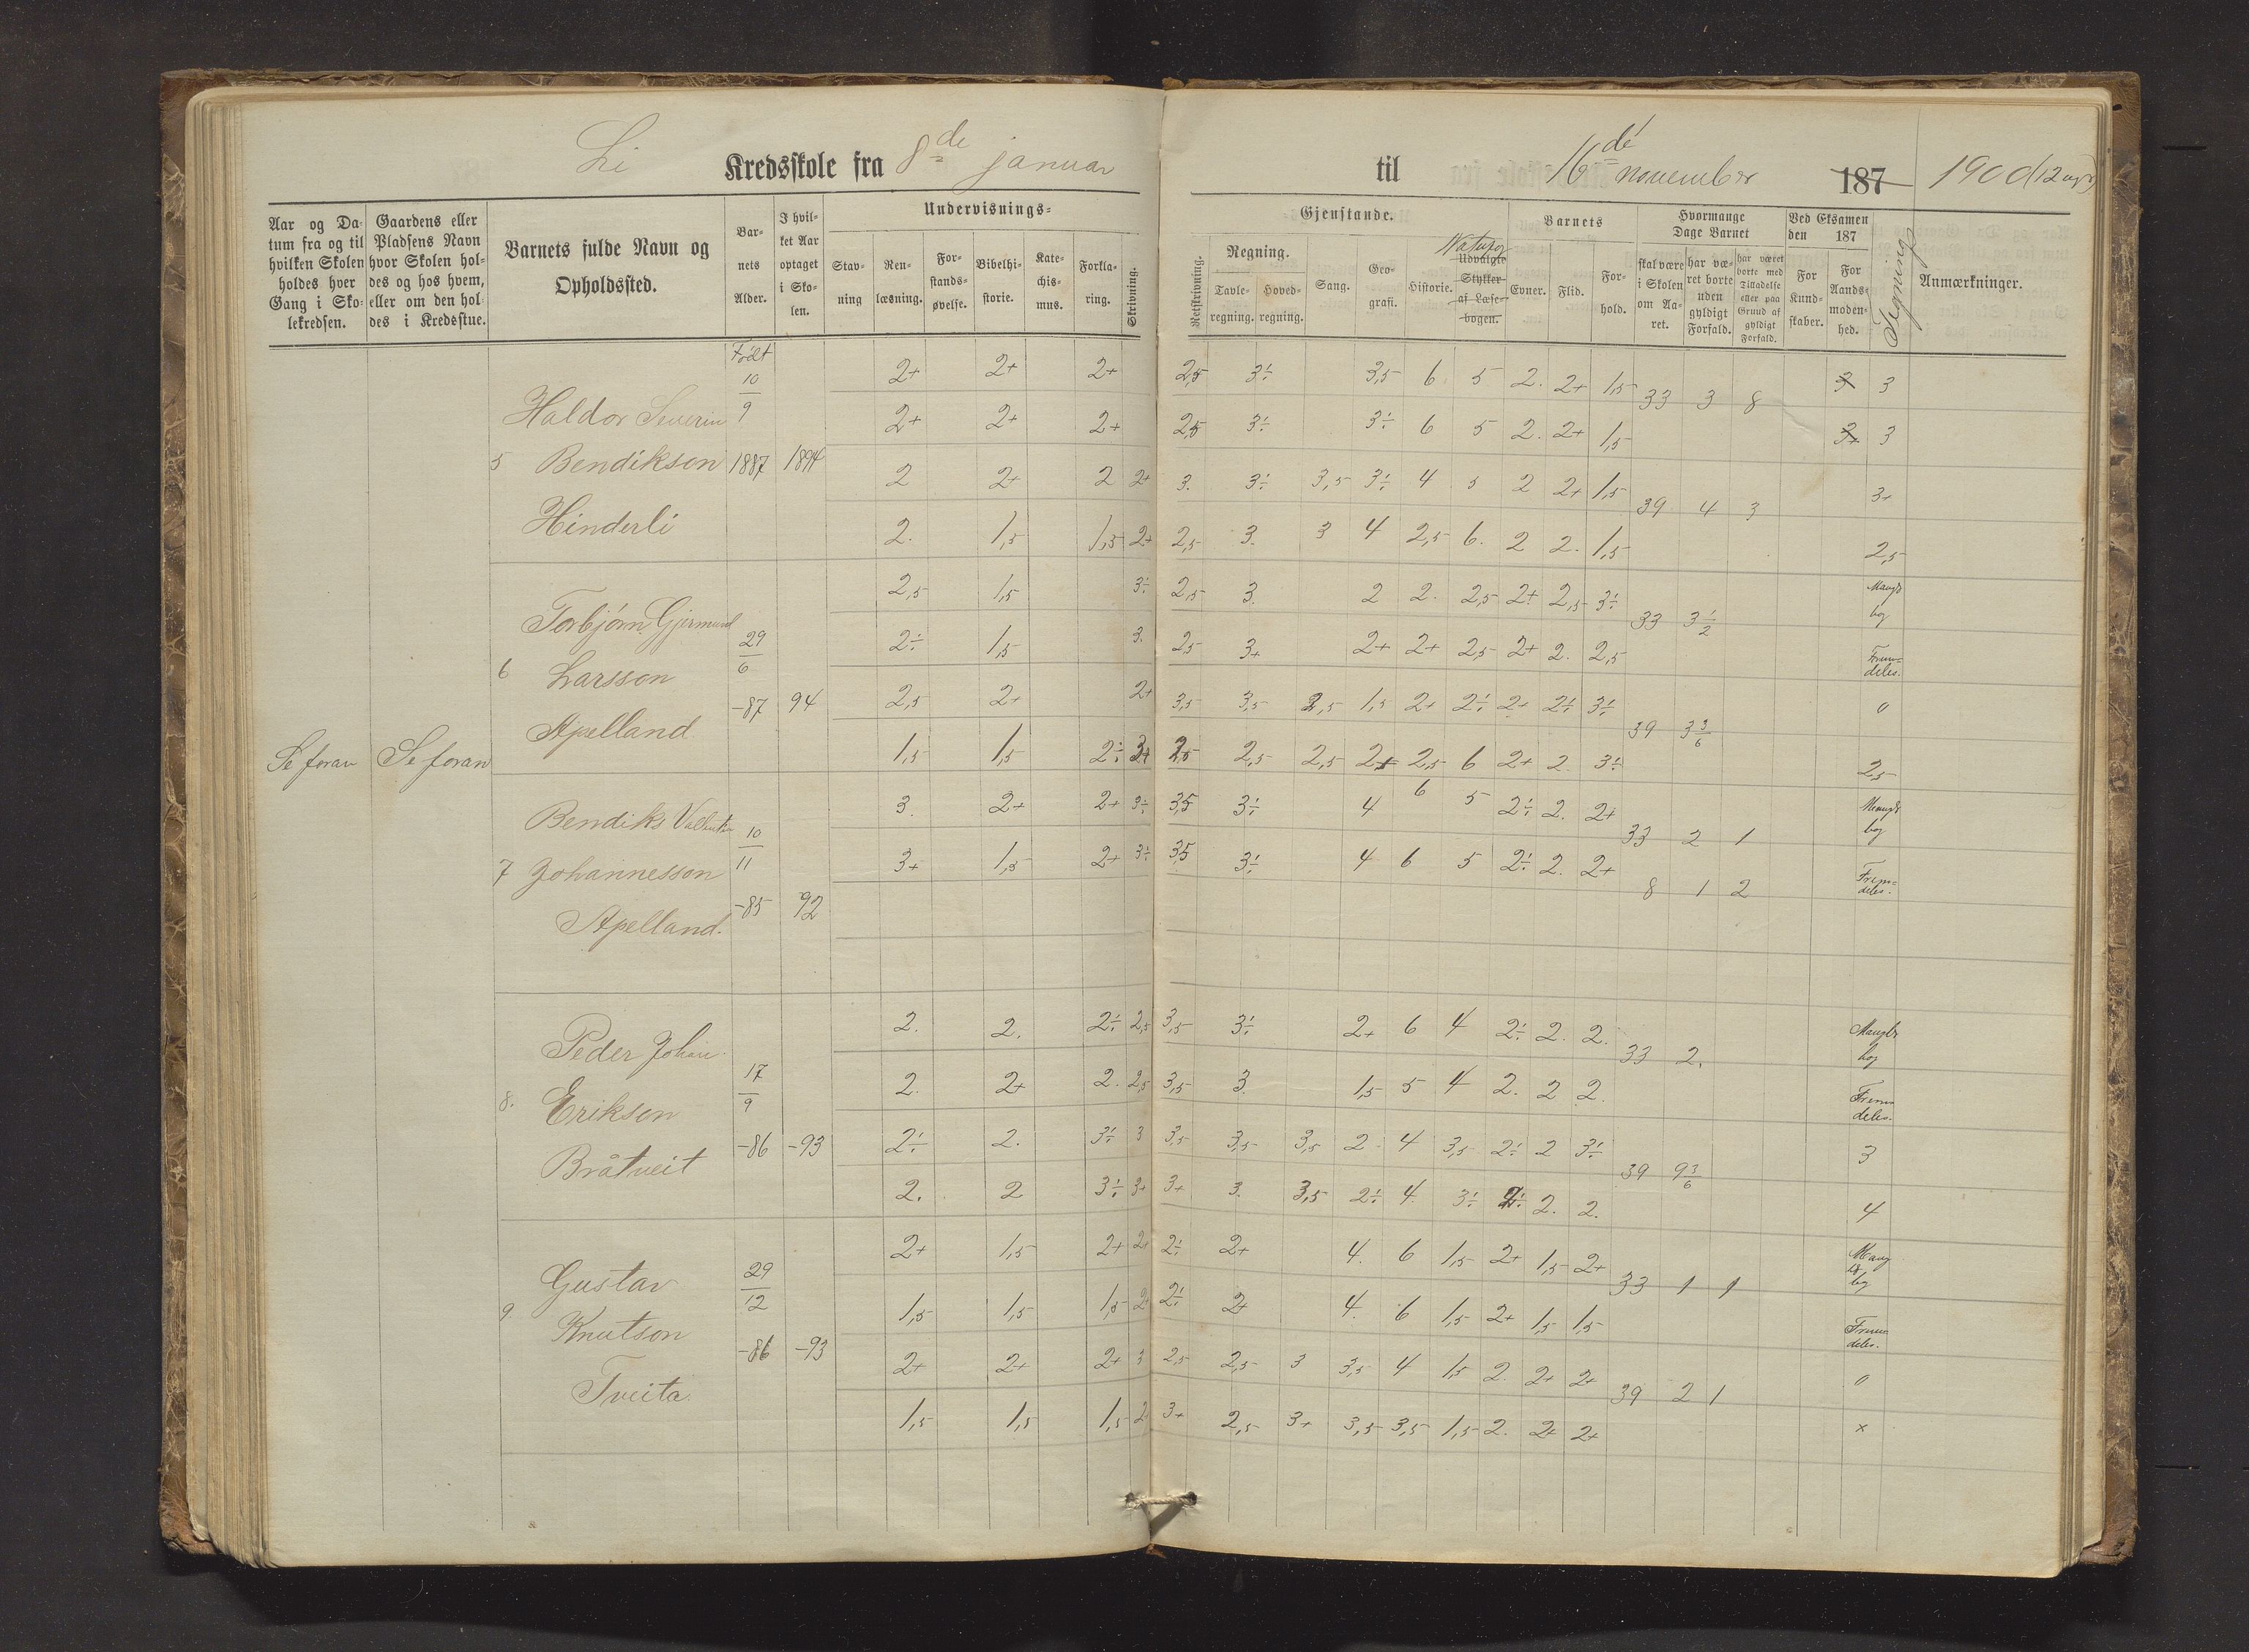 Li Kredsskole fra 8de januar til 16de november 187 1900 (12 uger)
Aar og Da-
tum fra og til
hvilken Skolen
holdes hver
Gang i Sko-
lekredsen.
Gaardens eller
Pladsens Navn
hvor Skolen hol-
des og hos hvem,
eller om den hol-
des i Kredsstue.
Barnets fulde Navn og
Opholdssted.
Bar-
nets
Alder.
I hvil-
ket Aar
optaget
i Sko-
len.
Undervisnings-
Stav-
ning
Ren-
læsning.
For-
stands-
øvelse.
Bibelhi-
storie.
Kate-
chis-
mus.
Forkla-
ring.
Skrivning.
Gjenstande.
Retskrivning.
Regning.
Tavle-
regning.
Hoved-
regning.
Sang.
Geo-
grafi.
Historie.
Naturfag
Udvalgte
Stykker
af Læse-
bogen.
Barnets
Evner.
Flid.
For-
hold.
Hvormange
Dage Barnet
skal være
i Skolen
om Aa-
ret.
har væ-
ret borte
uden
gyldigt
Forfald.
har været
borte med
Tilladelse
eller paa
Grund af
gyldigt
Forfald.
Ved Eksamen
den 187
For
Kund-
skaber.
For
Aands-
moden-
hed.
Tegning
Anmærkninger.
Se foran Se foran
5 Haldor Severin
Bendiksen
Hinderli
Født
10
9
1887 1894
2+ 2+ 2+ 2,5 3÷ 3,5 6 5 2. 2+ 1,5 33 3 8 3 3
2+ 2+ 2+ 2,5 3÷ 3÷ 6 5 2. 2+ 1,5 3+ 3
2 2+ 2 2+ 3. 3÷ 3,5 3÷ 4 5 2 2+ 1,5 39 4 3 3+
2. 1,5 1,5 2+ 2,5 3. 3 4 2,5 6. 2 2. 1,5 2,5
6 Torbjørn Gjermund
Larsson
Apelland
29
6
-87 94
2,5 1,5 3÷ 2,5 3. 2 2. 2,5 2+ 2,5 3÷ 33 3 1/2 Mangl
bog
2÷ 1,5 3. 2,5 3+ 2+ 2+ 2,5 2+ 2. 2,5 Frem-
deles.
2,5 2+ 2+ 3,5 3,5 2,5 1,5 2+ 2÷ 2+ 2÷ 3÷ 39 3 3/6 0
1,5 1,5 2÷ 3+ 2,5 2,5 2,5 2+ 2,5 6 2+ 2. 3÷ 2,5
7 Bendiks
Johannesson
Apelland.
10
11
-85 92
3. 2+ 2+ 3÷ 3,5 3÷ 4 6 5 2÷ 2. 2+ 33 2 1 Mangler
bog
3+ 1,5 2+ 3÷ 3,5 3÷ 4 6 5 2÷ 2. 2+ 8 1 2 Frem-
deles.
8. Peder Johan
Eriksen
Bråtveit
17
9
-86 -93
2. 2. 2÷ 2,5 3,5 3÷ 2+ 6 4 2÷ 2. 2. 33 2. Mangler
bog
2. 2+ 2. 2,5 3,5 3. 1,5 5 4 2. 2 2. Frem
deles.
2÷ 2. 3÷ 3 3,5 3,5 3,5 2 4 3,5 2÷ 2 3÷ 39 9 3/6 3
2. 2 3÷ 3+ 3+ 3. 3,5 2÷ 4 3÷ 2÷ 2. 2. 4
9. Gustav
Knutson
Tveita.
29
12
-86 -93
2+ 1,5 2+ 2+ 2÷ 2+ 4. 6 1,5 2+ 1,5 2+ 33 1 1 Mang
bog
1,5 1,5 1,5 2÷ 2÷ 2+ 4. 6 1,5 2+ 1,5 1,5 Frem-
deles.
2+ 2+ 2+ 3 2,5 2,5 3 3,5 4 1,5 2. 2+ 2+ 39 2 1 0
1,5 1,5 1,5 2. 3+ 2,5 3+ 3,5 3,5 1,5 2. 2+ 2+ x